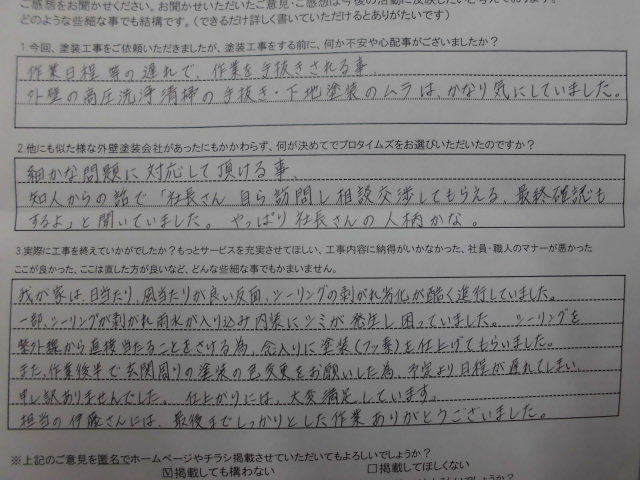 ご感想をお聞かせください。お聞かせいただいたご意見・ご感想は今後の活動に反映したいと考えております。
どのような些細な事でも結構です。（できるだけ詳しく書いていただけるとありがたいです）
1.今回、塗装工事をご依頼いただきましたが、塗装工事をする前に、何か不安や心配事がございましたか？
作業日程等の遅れで、作業を手抜きされる事、
外壁の高圧洗浄清掃の手抜き・下地塗装のムラは、かなり気にしていました。
2.他にも似た様な外壁塗装会社があったにもかかわらず、何が決めてでプロタイムズをお選びいただいたのですか？
細かな問題に対応して頂ける事、
知人からの話で「社長さん自ら訪問し相談交渉してもらえる、最終確認も
するよ」と聞いていました。やっぱり社長さんの人柄かな。
3.実際に工事を終えていかがでしたか？もっとサービスを充実させてほしい、工事内容に納得がいかなかった、社員・職人のマナーが悪かった
ここが良かった、ここは直した方が良いなど、どんな些細な事でもかまいません。
我が家は、日当たり、風当たりが良い反面、シーリングの剥がれ劣化が酷く進行していました。
一部、シーリングが剥がれ雨水が入り込み内装にシミが発生し困っていました。シーリングを
紫外線から直接当たることをさける為、念入りに塗装(フッ素)を仕上げてもらいました。
また、作業後半で玄関周りの塗装の色変更をお願いした為、予定より日程が遅れてしまい、
申し訳ありませんでした。仕上がりには、大変満足しています。
担当の伊藤さんには、最後までしっかりとした作業ありがとうございました。
※上記のご意見を匿名でホームページやチラシ掲載させていただいてもよろしいでしょうか？
☑掲載しても構わない □掲載してほしくない